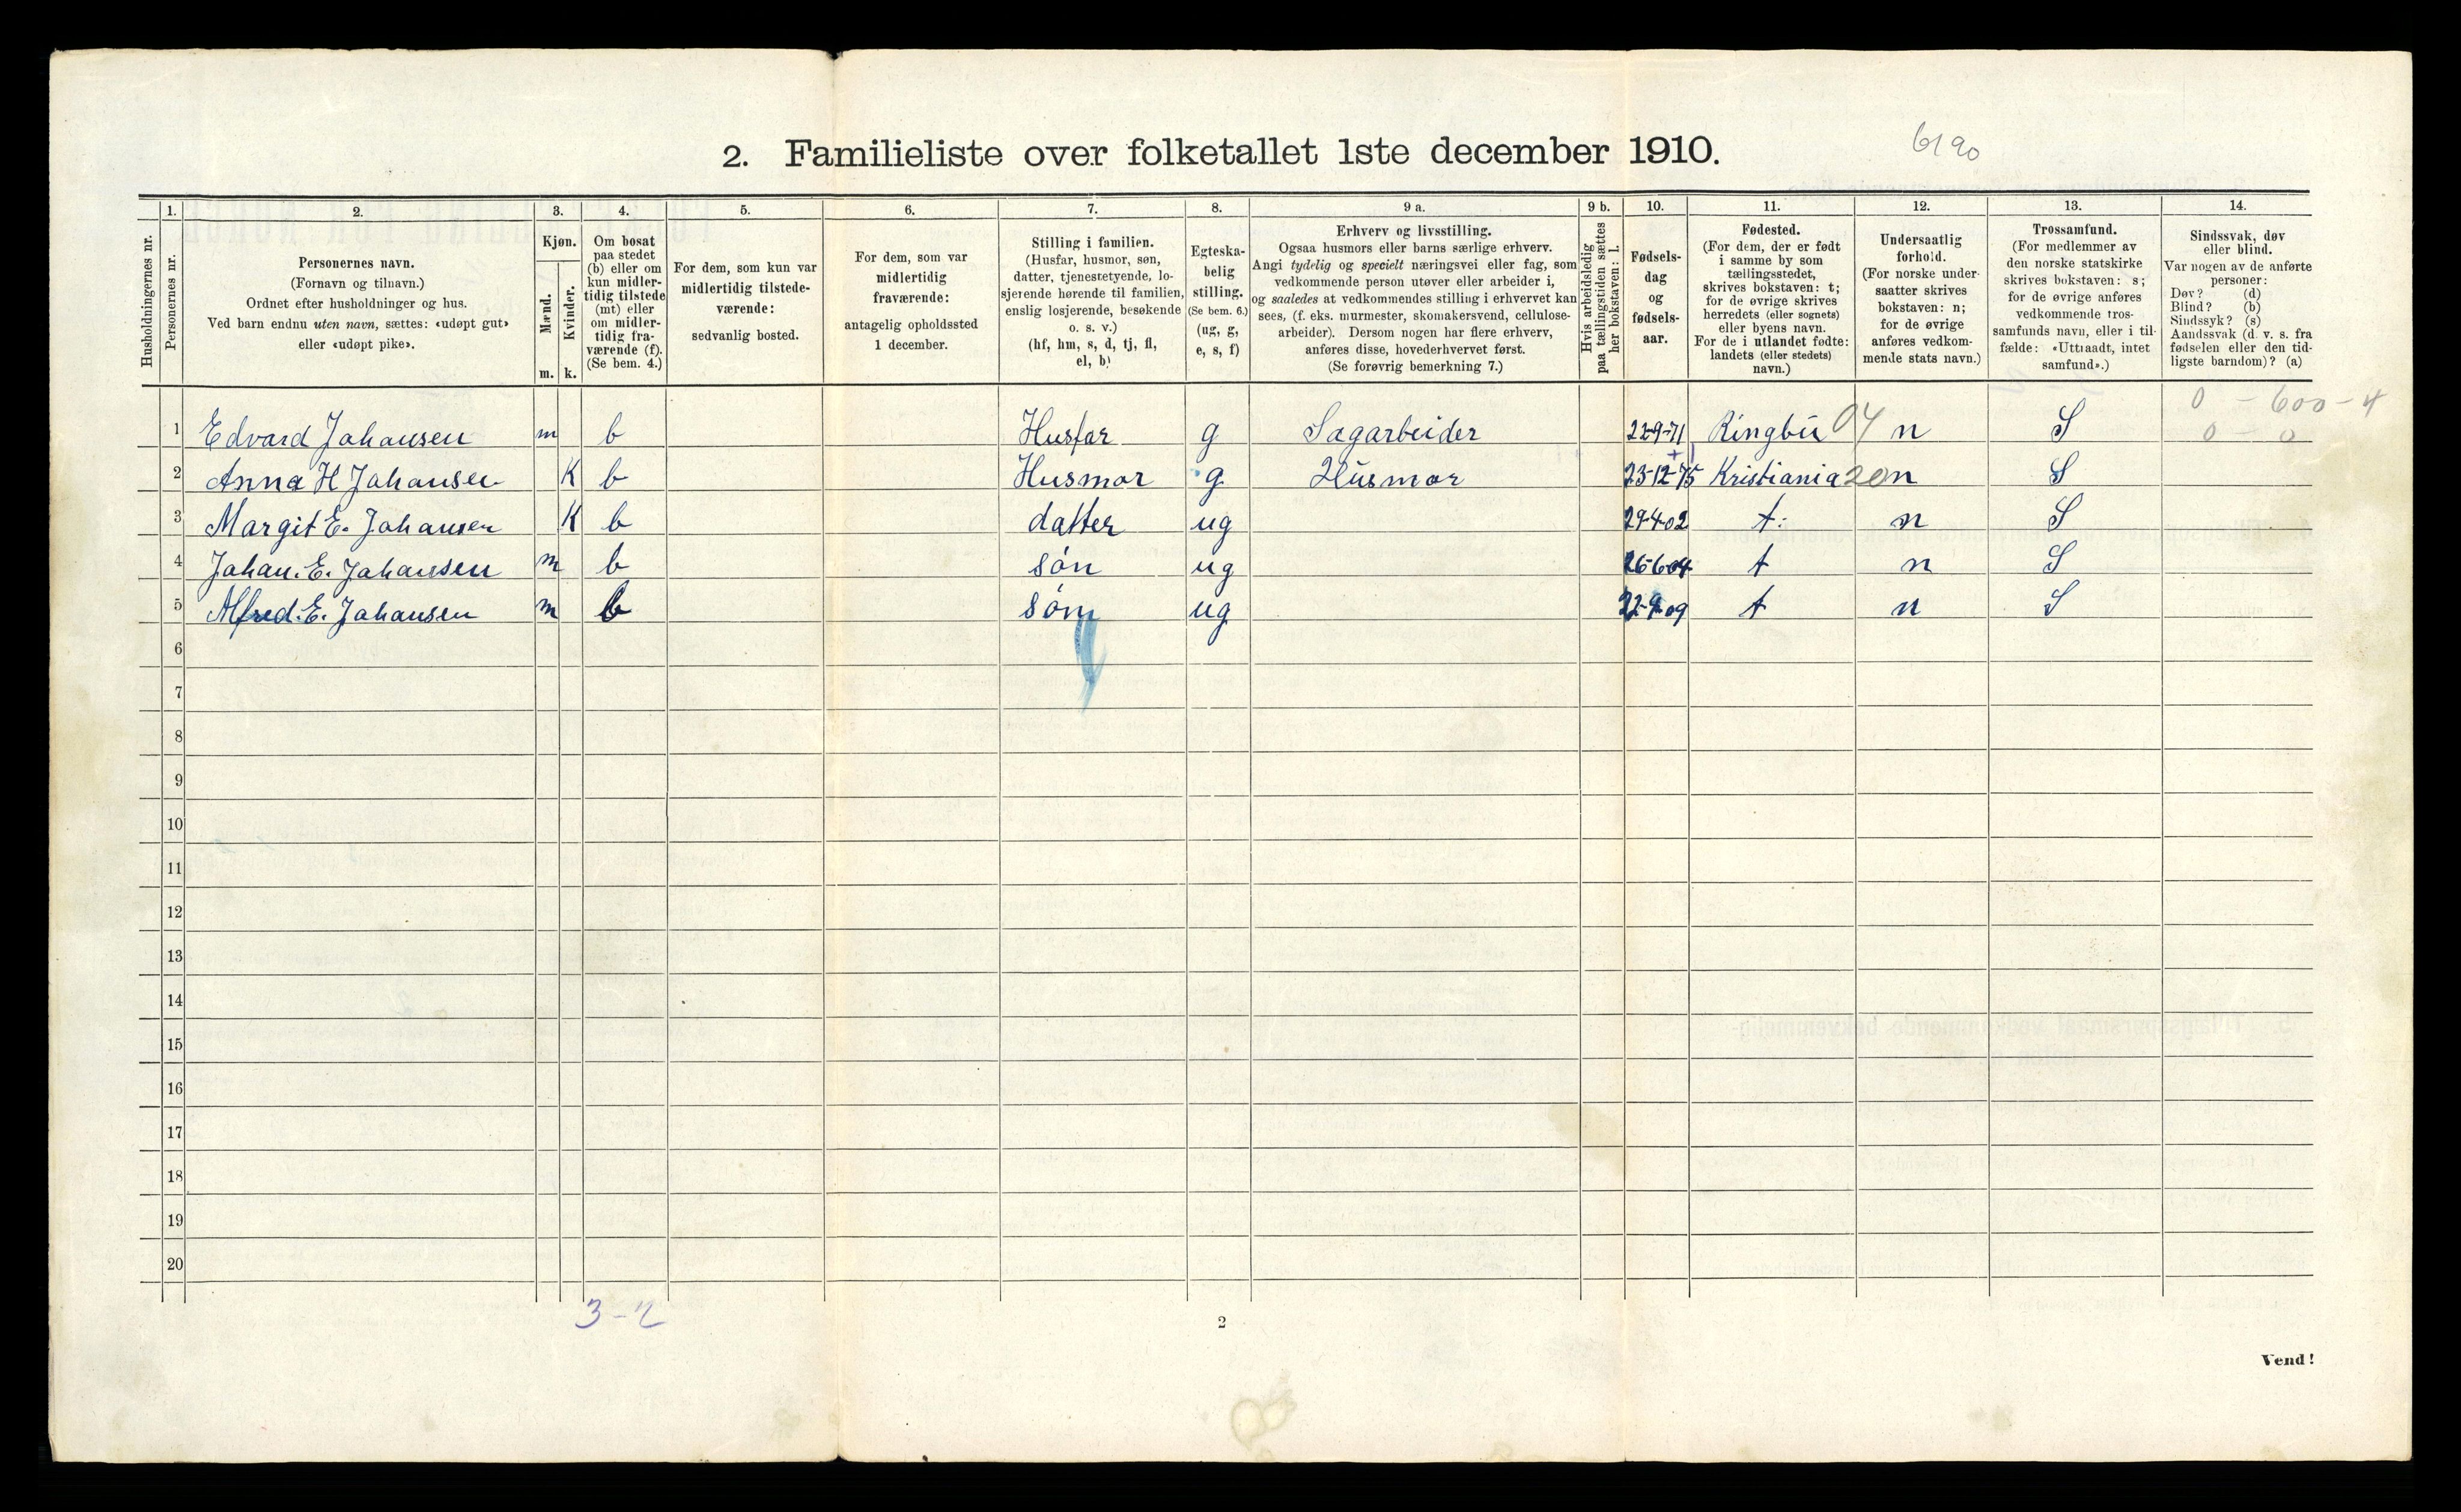 6190
2. Familieliste over folketallet 1ste december 1910.
Husholdningernes nr.
1. Personernes nr.
2. Personernes navn.
(Fornavn og tilnavn.)
Ordnet efter husholdninger og hus.
Ved barn endnu uten navn, sættes: «udøpt gut»
eller «udøpt pike».
3. Kjøn.
Mænd. m.
Kvinder. k.
4. Om bosat
paa stedet
(b) eller om
kun midler-
tidig tilstede
(mt) eller
om midler-
tidig fra-
værende (f).
(Se bem. 4.)
5. For dem, som kun var
midlertidig tilstede-
værende:
sedvanlig bosted.
6. For dem, som var
midlertidig
fraværende:
antagelig opholdssted
1 december.
7. Stilling i familien.
(Husfar, husmor, søn,
datter, tjenestetyende, lo-
sjerende hørende til familien,
enslig losjerende, besøkende
o. s. v.)
(hf, hm, s, d, tj, fl,
el, b)
8. Egteska-
belig
stilling.
(Se bem. 6.)
(ug, g,
e, s, f)
9 a. Erhverv og livsstilling.
Ogsaa husmors eller barns særlige erhverv.
Angi tydelig og specielt næringsvei eller fag, som
vedkommende person utøver eller arbeider i,
og saaledes at vedkommendes stilling i erhvervet kan
sees, (f. eks. murmester, skomakersvend, cellulose-
arbeider). Dersom nogen har flere erhverv,
anføres disse, hovederhvervet først.
(Se forøvrig bemerkning 7.)
9 b. Hvis arbeidsledig
paa tællingstiden sættes
her bokstaven: l.
10. Fødsels-
dag
og
fødsels-
aar.
11. Fødested.
(For dem, der er født
i samme by som
tællingsstedet,
skrives bokstaven: t;
for de øvrige skrives
herredets (eller sognets)
eller byens navn.
For de i utlandet fødte:
landets (eller stedets)
navn.)
12. Undersaatlig
forhold.
(For norske under-
saatter skrives
bokstaven: n;
for de øvrige
anføres vedkom-
mende stats navn.)
13. Trossamfund.
(For medlemmer av
den norske statskirke
skrives bokstaven: s;
for de øvrige anføres
vedkommende tros-
samfunds navn, eller i til-
fælde: «Uttraadt, intet
samfund».)
14. Sindssvak, døv
eller blind.
Var nogen av de anførte
personer:
Døv? (d)
Blind? (b)
Sindssyk? (s)
Aandssvak (d. v. s. fra
fødselen eller den tid-
ligste barndom)? (a)
0 - 600 - 4
1 Edvard Johansen m b Husfar g Sagarbeider 22-9-71 Ringbu 04 n S 0 - 0
2 Anna H Johansen K b Husmor g Husmor 23-12-75 Kristiania 20 n S
3 Margit E. Johansen K b datter ug 29-4-02 t: n S
4 Johan. E. Johansen m b søn ug 26-6-04 t n S
5 Alfred. E. Johansen m b søn ug 22-9-09 t n S
6
7
8
9
10
11
12
13
14
15
16
17
18
19
20
3-2
2
Vend!